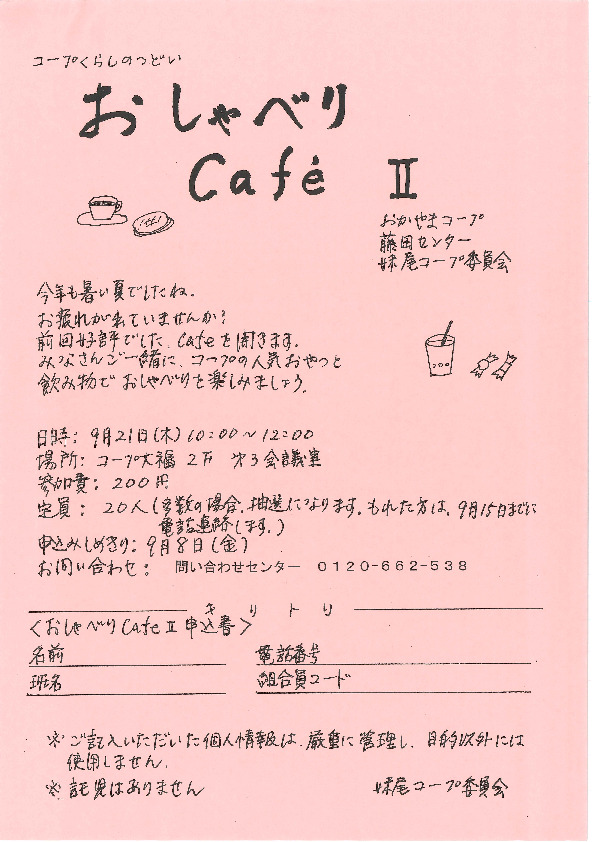 コープくらしのつどい
おしゃべり
Café Ⅱ
おかやまコープ
藤田センター
妹尾コープ委員会
今年も暑い夏でしたね。
お疲れが出ていませんか?
前回好評でした、Cafeを開きます。
みなさんご一緒に、コープの人気おやつと
飲み物で おしゃべりを楽しみましょう。
日時: 9月21日(木) 10:00~12:00
場所: コープ大福 2F 第3会議室
参加費: 200円
定員: 20人(多数の場合、抽選になります。もれた方は、9月15日までに
電話連絡します。)
申込みしめきり: 9月8日(金)
お問い合わせ: 問い合わせセンター 0120-662-538
キリトリ
<おしゃべりCafeⅡ申込書>
名前 電話番号
班名 組合員コード
※ご記入いただいた個人情報は、厳重に管理し、目的以外には
使用しません。
※託児はありません 妹尾コープ委員会